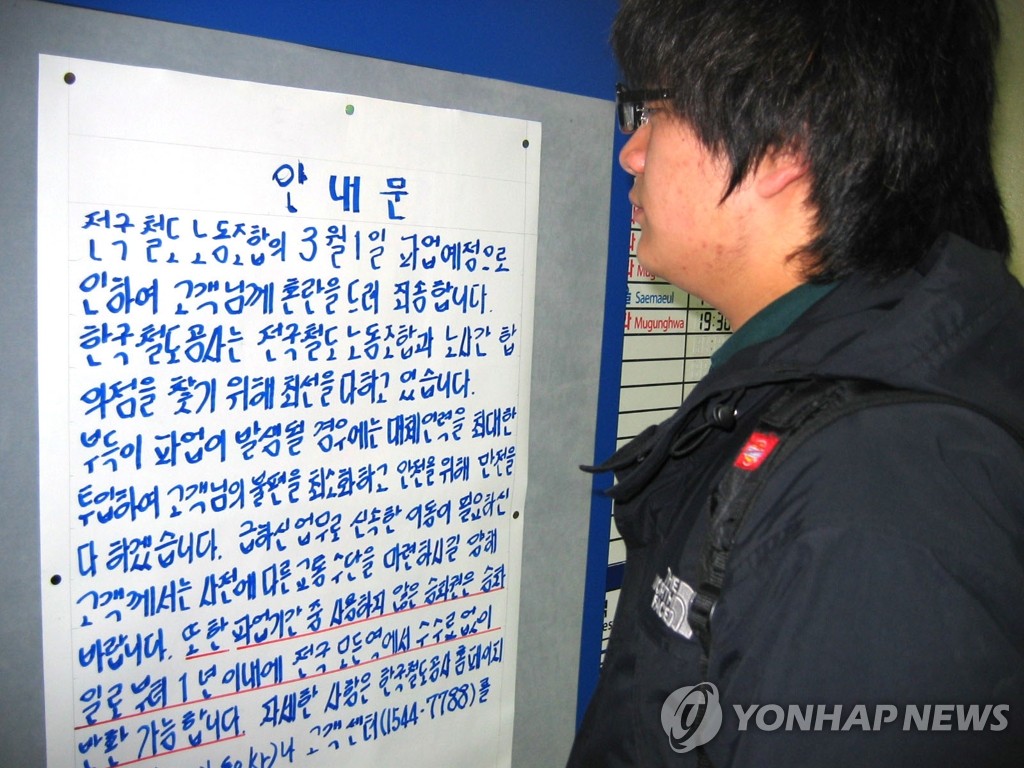 안내문
전국 철도 노동조합의 3월1일 파업예정으로
인하여 고객님께 혼란을 드려 죄송합니다.
한국철도공사는 전국철도노동조합과 노사간 합
의점을 찾기 위해 최선을 다하고 있습니다.
부득이 파업이 발생될 경우에는 대체인력을 최대한
투입하여 고객님의 불편을 최소화하고 안전을 위해 만전을
다 하겠습니다. 급하신 업무로 신속한 이동이 필요하신
고객께서는 사전에 다른 교통수단을 마련하시길 양해
바랍니다. 또한 파업기간 중 사용하지 않은 승차권은 승차
일로부터 1년 이내에 전국 모든역에서 수수료없이
반환 가능합니다. 자세한 사항은 한국철도공사 홈페이지
고객센터(1544-7788)를
Saemaeul
Mugunghwa 19:30
THE NORTH FACE
YONHAP NEWS